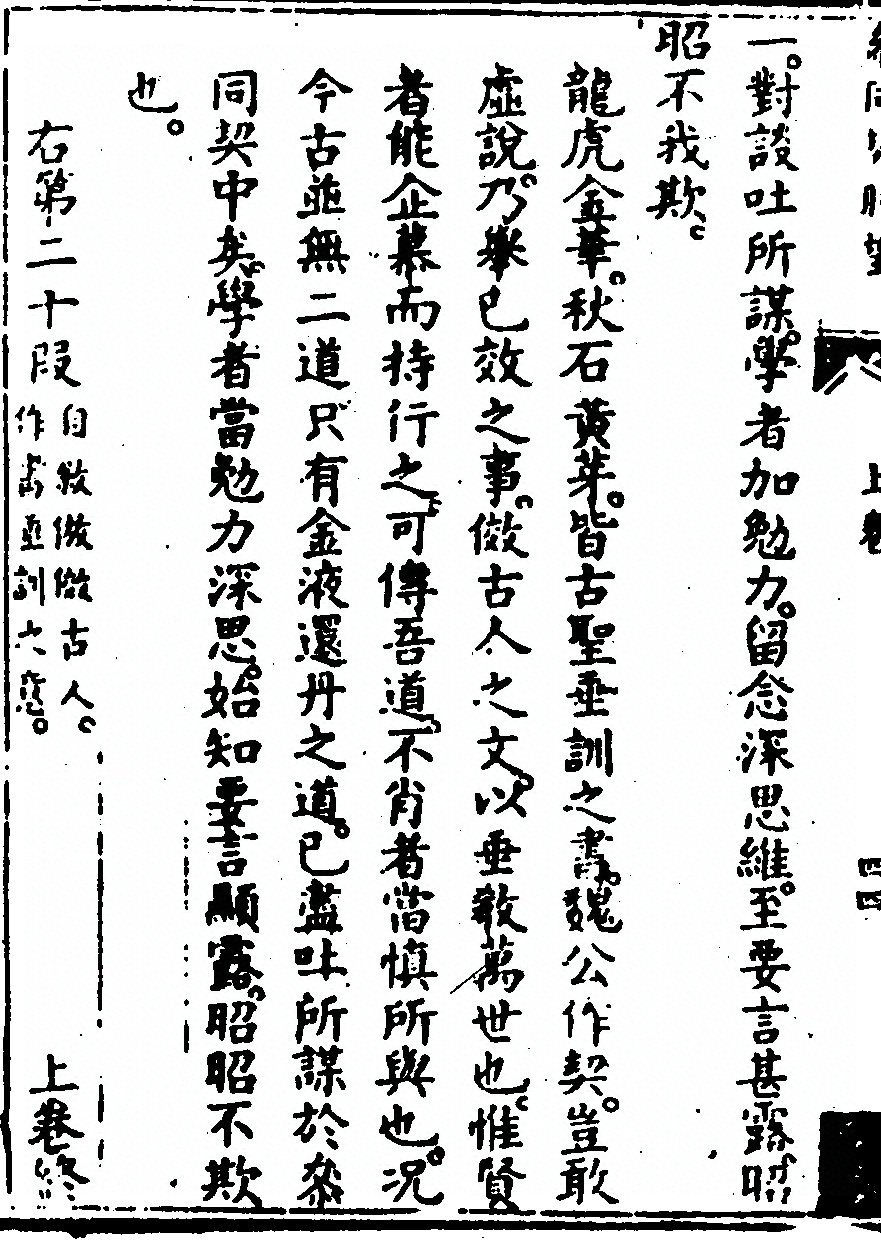 一。對談吐所謀。學者加勉力。留念深思維。至要言甚露。昭
昭不我欺。
龍虎金華。秋石黃芽。皆古聖垂訓之書。魏公作契。豈敢
虛說。乃舉已效之事。倣古人之文。以垂敎萬世也。惟賢
者能企慕而持行之。可傳吾道。不肖者當慎所與也。況
今古並無二道只有金液還丹之道。已盡吐所謀於叅
同契中矣。學者當勉力深思。始知要言顯露。昭昭不欺
也。
右第二十段
自敘倣傚古人。
作書垂訓之意。
上卷終
上卷
四四